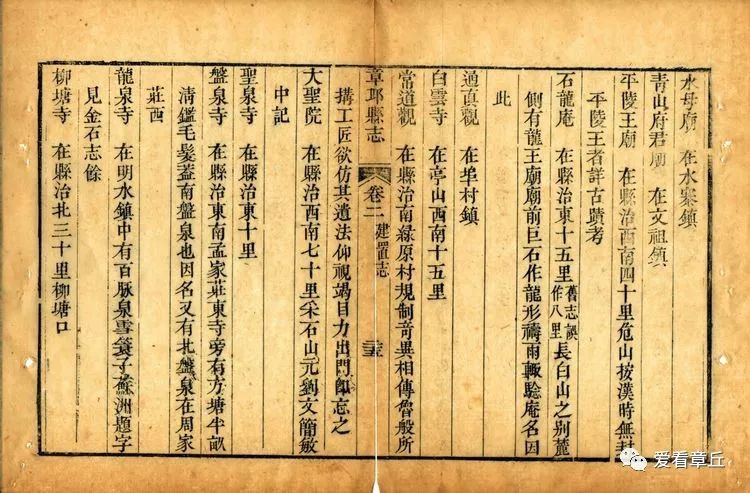 水母廟　在水寨鎮
青山府君廟　在文祖鎮
平陵王廟　在縣治西南四十里危山按漢時無封
平陵王者詳古蹟考
石龍庵　在縣治東十五里舊志誤作八里長白山之别麓
側有龍王廟廟前巨石作龍形禱雨輙騐庵名因
此
過真觀　在埠村鎮
白雲寺　在亭山西南十五里
常道觀　在縣治南綠原村規制竒異相傳魯般所
章邱縣志　卷二　建置志
搆工匠欲仿其遺法仰視竭目力出門即忘之
大聖院　在縣治西南七十里采石山元劉文簡敏
中記
聖泉寺　在縣治東十里
盤泉寺　在縣治東南孟家莊東寺旁有方塘半畝
清鑑毛髮蓋南盤泉也因名又有北盤泉在周家
莊西
龍泉寺　在明水鎮中有百脉泉雪蓑子蘇洲題字
見金石志餘
柳塘寺　在縣治北三十里柳塘口
爱看章丘